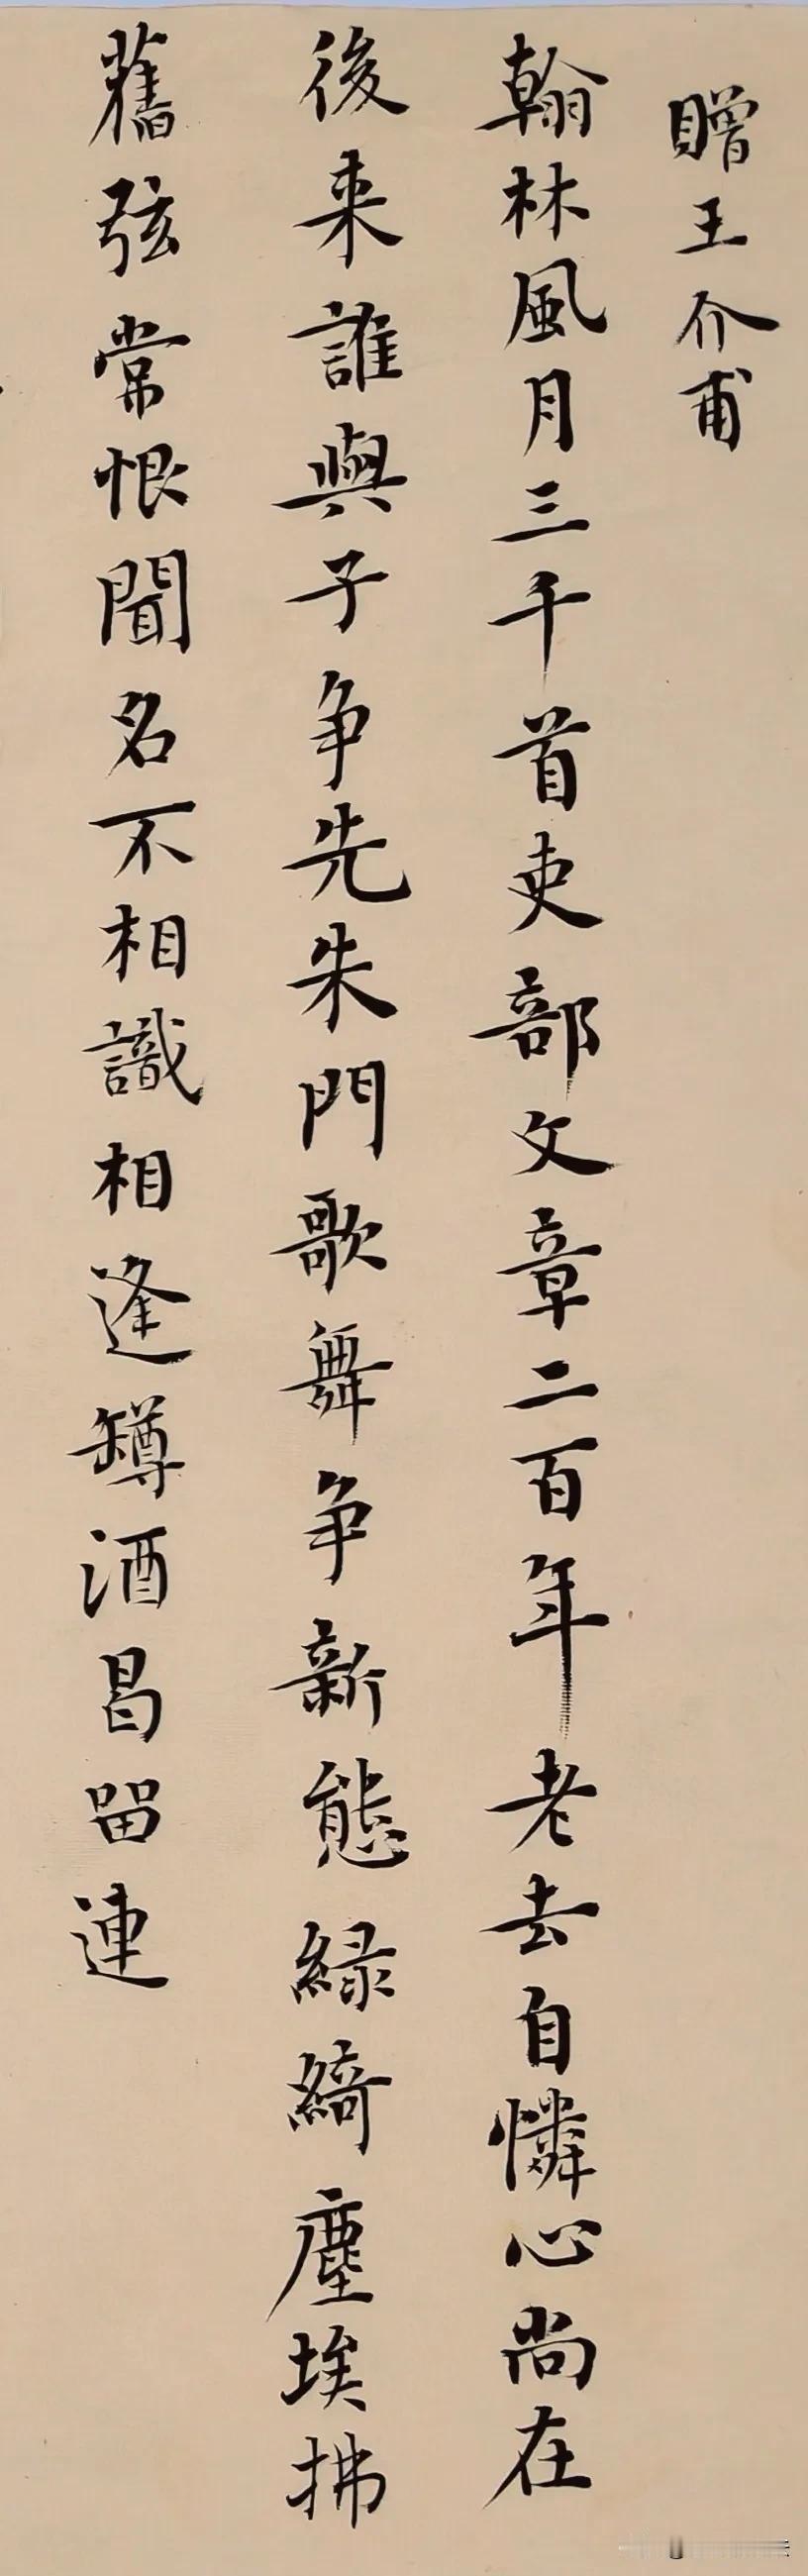 贈王介甫
翰林風月三千首吏部文章二百年老去自憐心尚在
後来誰與子争先朱門歌舞争新態綠綺塵埃拂
舊弦常恨聞名不相識相逢罇酒曷留連